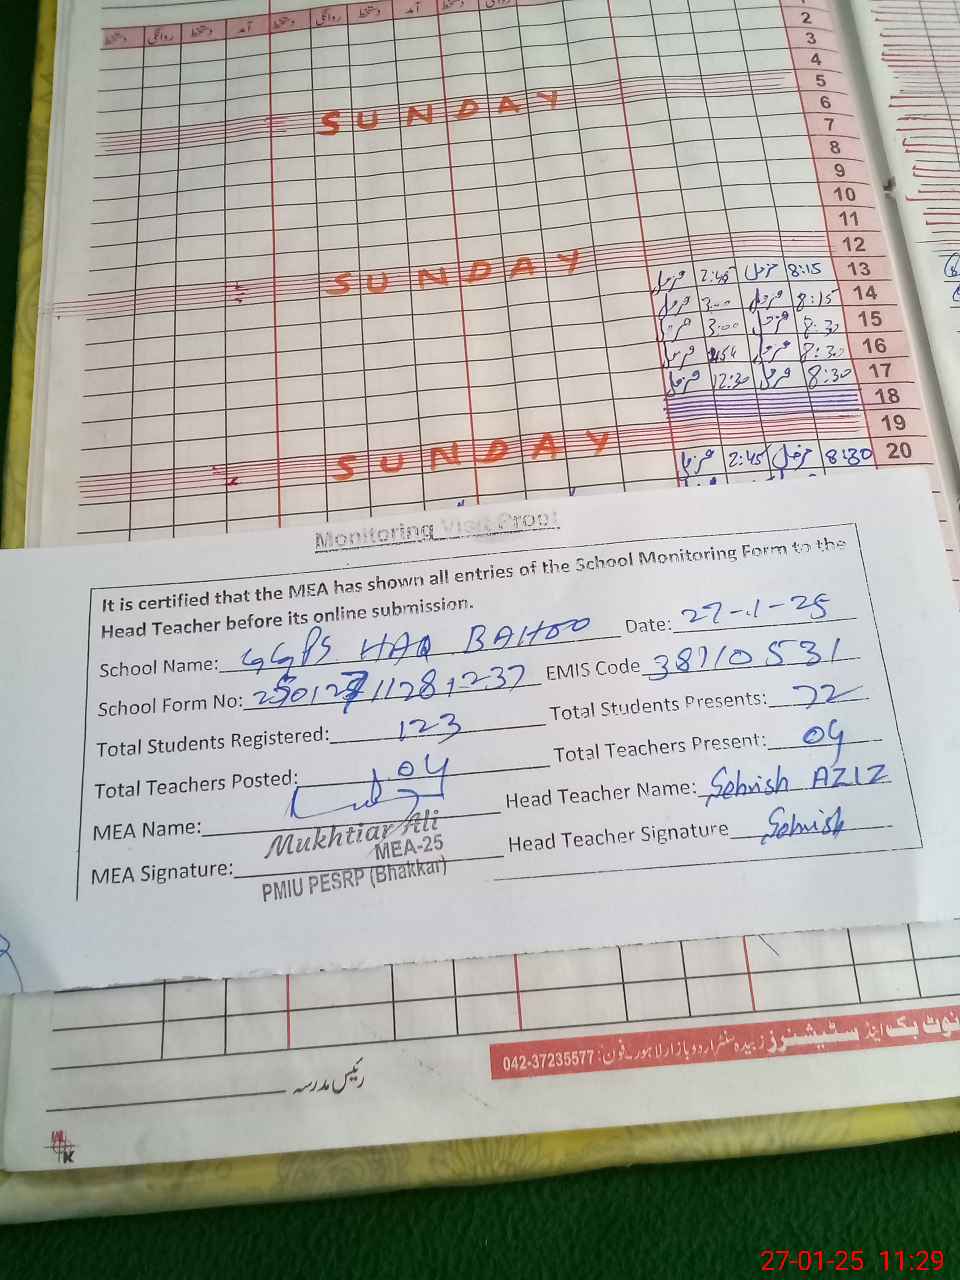 دستخط روانگی دستخط آمد دستخط روانگی دستخط آمد
2
3
4
5
6
SUNDAY
7
8
9
10
11
12
SUNDAY
2:45 8:15 13
3:00 8:15 14
3:00 8:30 15
8:30 16
12:30 8:30 17
18
19
SUNDAY
2:45 8:30 20
Monitoring Visit Proof
It is certified that the MEA has shown all entries of the School Monitoring Form to the
Head Teacher before its online submission.
School Name: GGPS HAQ BAHOO Date: 27-1-25
School Form No: EMIS Code 38710531
Total Students Registered: 123 Total Students Presents: 72
Total Teachers Posted: 04 Total Teachers Present: 04
MEA Name: Head Teacher Name: Sehrish AZIZ
Mukhtiar Ali
MEA-25
MEA Signature: Head Teacher Signature Sehrish
PMIU PESRP (Bhakkar)
نوٹ بک اینڈ سٹیشنرز زبیدہ سنٹر اردو بازار لاہور۔ فون: 042-37235577
رئیس مدرسہ
27-01-25 11:29